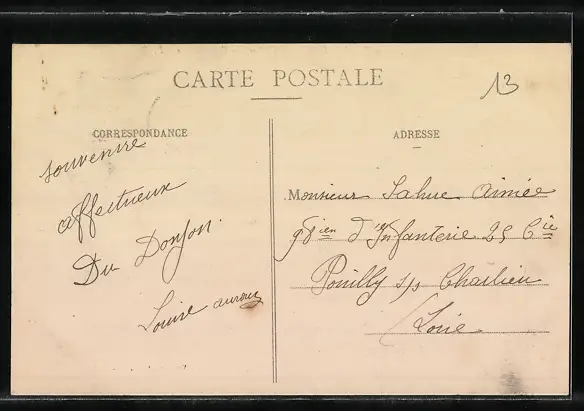 CARTE POSTALE
13
CORRESPONDANCE
souvenire
affectueux
Du Donjon.
Louise auroux
ADRESSE
Monsieur Sahuc Aimée
98ien d'Infanterie 25 Cie
Pouilly s/s Charlieu
Loire